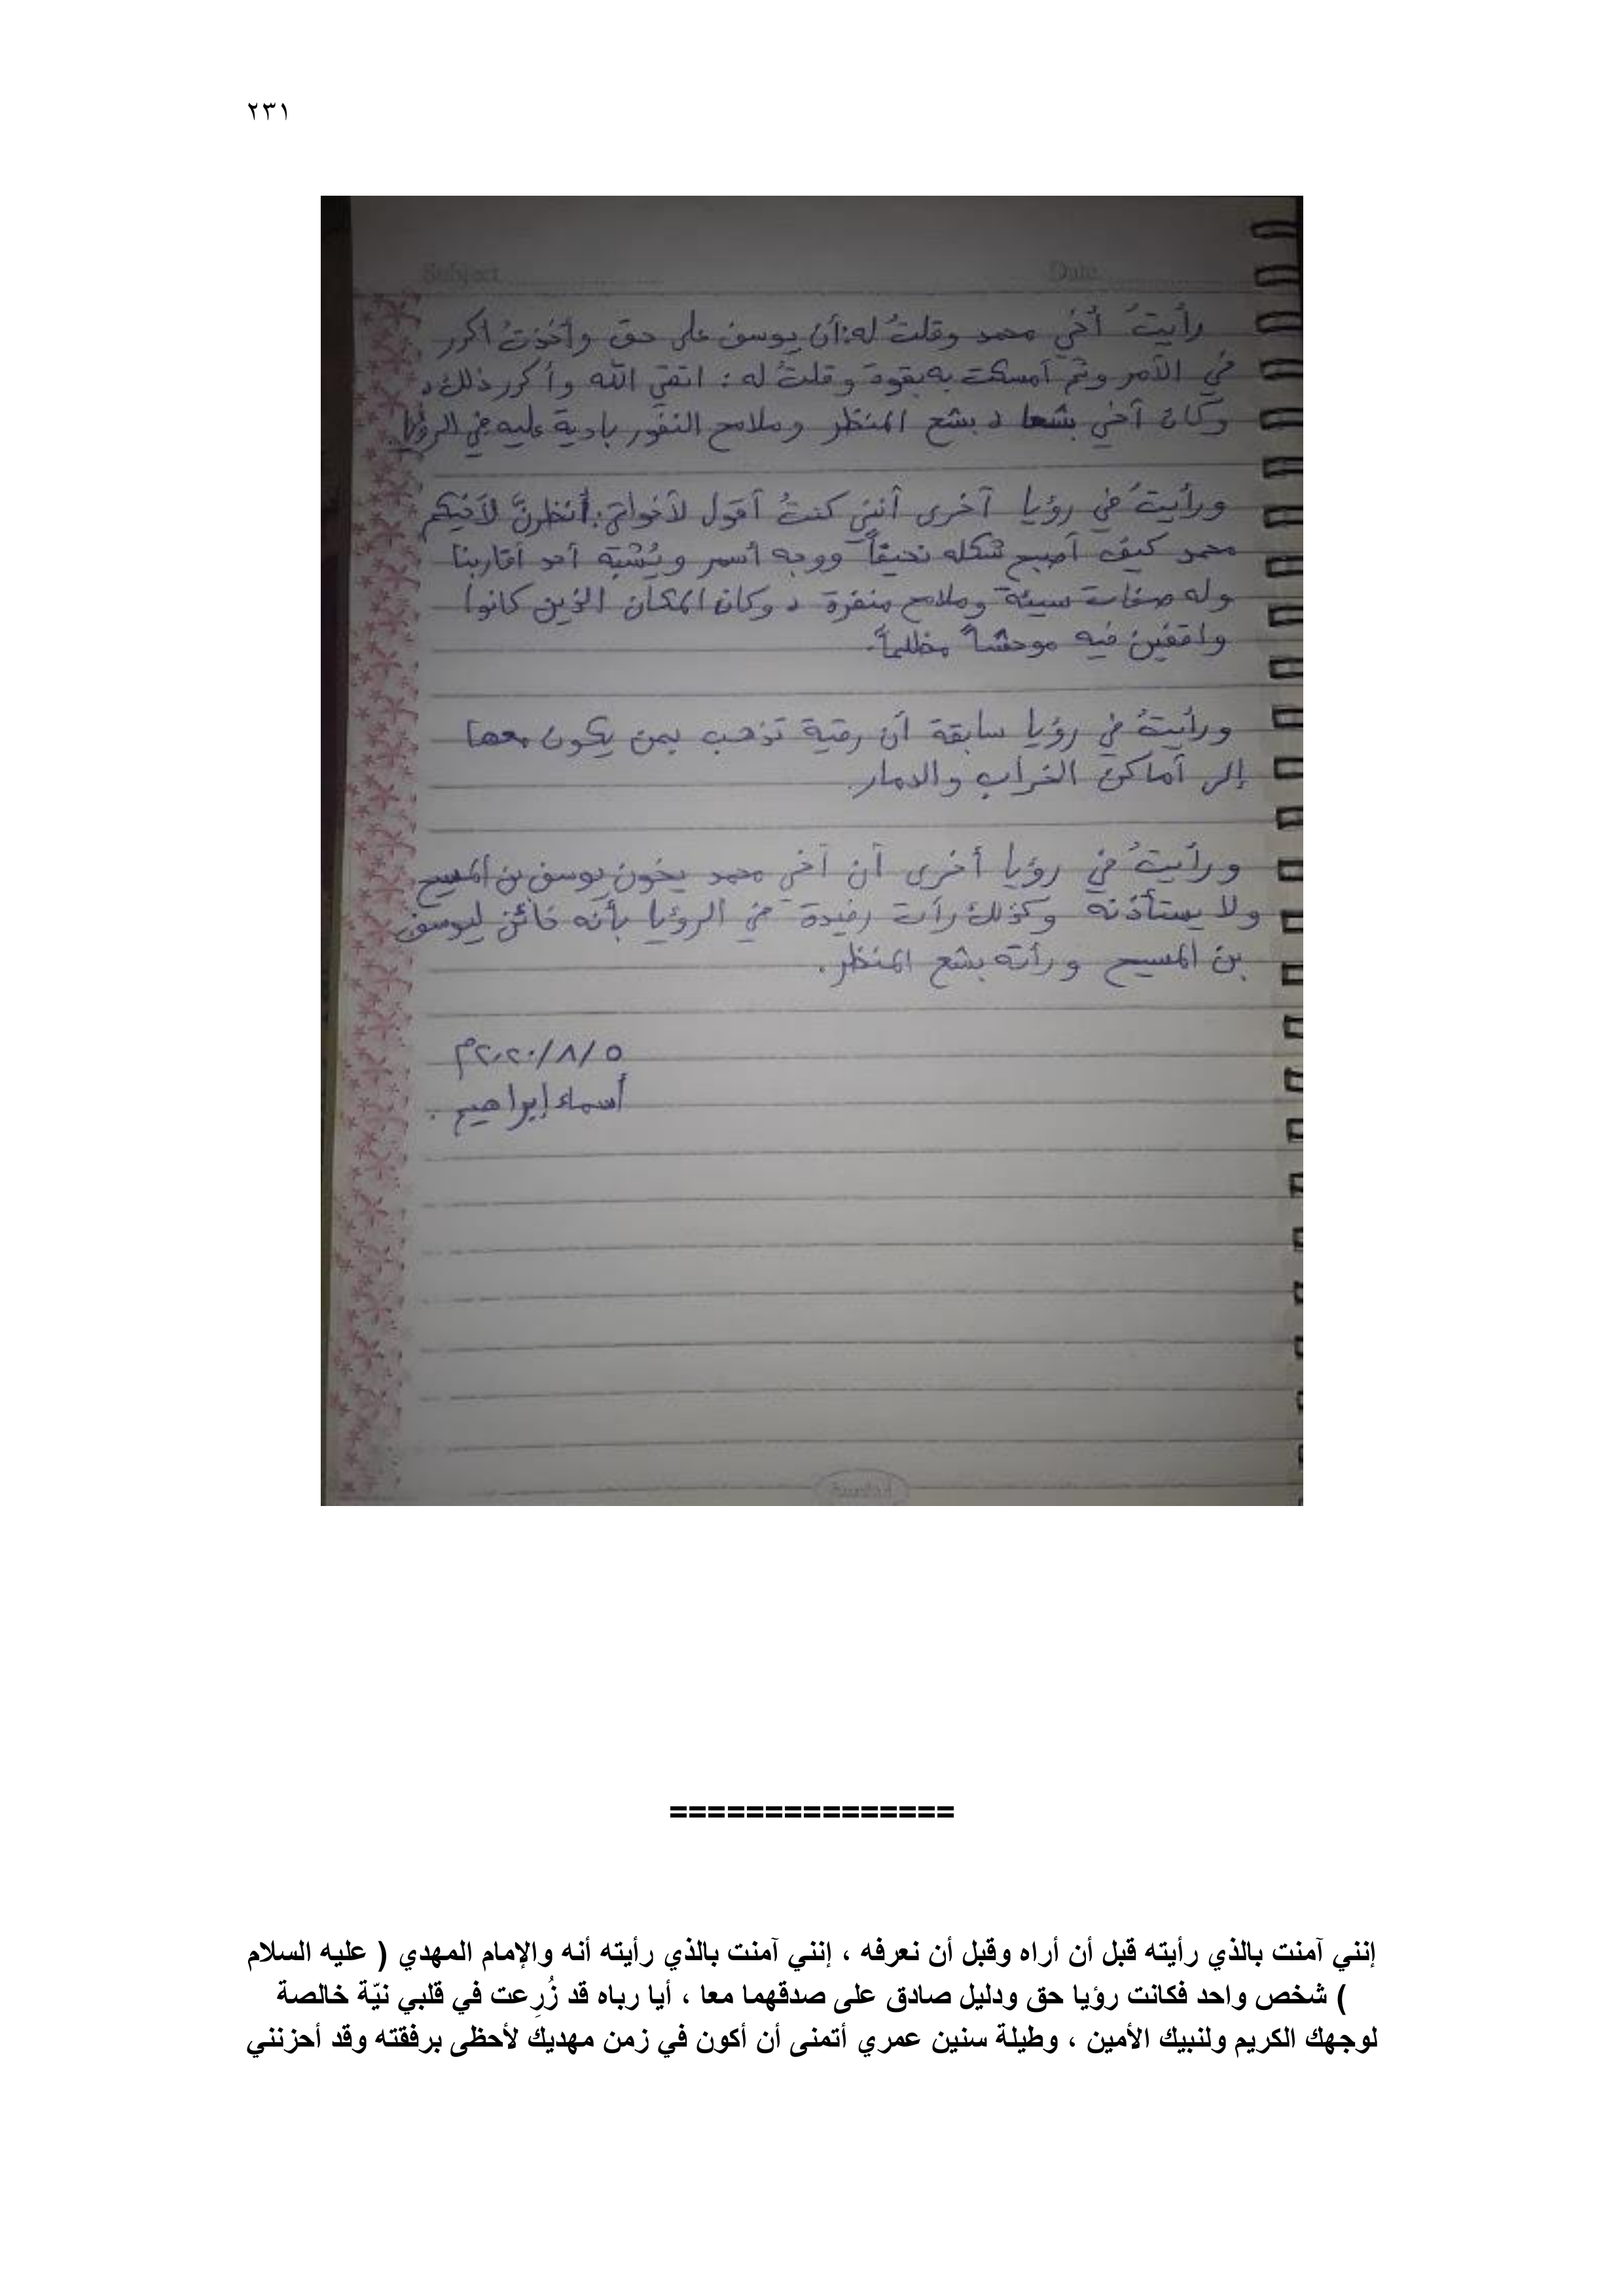 ٢٣١
Subject
Date
رأيتُ أخي محمد وقلتُ له: أن يوسف على حق وأخذتُ اكرر
في الأمر وثم أمسكت به بقوة وقلتُ له : اتقي الله وأكرر ذلك د
وكان أخي بشعا د بشع المنظر وملامح النفور بادية عليه في الرؤيا.
ورأيتُ في رؤيا آخرى أنني كنتُ أقول لأخواتي: أنظرنَّ لأخيكم
محمد كيف أصبح شكله نحيفاً ووجه أسمر ويُشبه أحد أقاربنا
وله صفات سيئة وملامح منفرة د وكان المكان الذين كانوا
واقفين فيه موحشاً مظلماً.
ورأيتُ في رؤيا سابقة أن رقية تذهب بمن يكون معها
إلى أماكن الخراب والدمار.
ورأيتُ في رؤيا أخرى أن أخي محمد يخون يوسف بن المسيح
ولا يستأذنه وكذلك رأت رفيدة في الرؤيا بأنه خائن ليوسف
بن المسيح ورأته بشع المنظر.
٢٠٢٠/٨/٥م
أسماء إبراهيم .
===============
إنني آمنت بالذي رأيته قبل أن أراه وقبل أن نعرفه ، إنني آمنت بالذي رأيته أنه والإمام المهدي ( عليه السلام
) شخص واحد فكانت رؤيا حق ودليل صادق على صدقهما معا ، أيا رباه قد زُرِعت في قلبي نيّة خالصة
لوجهك الكريم ولنبيك الأمين ، وطيلة سنين عمري أتمنى أن أكون في زمن مهديك لأحظى برفقته وقد أحزنني